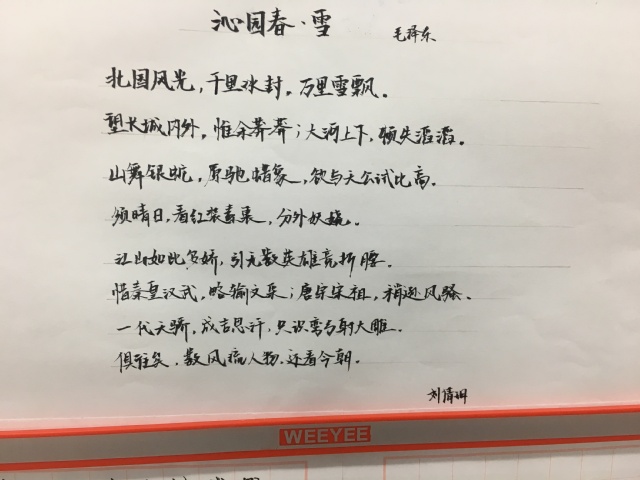 沁园春·雪
毛泽东
北国风光，千里冰封，万里雪飘。
望长城内外，惟余莽莽；大河上下，顿失滔滔。
山舞银蛇，原驰蜡象，欲与天公试比高。
须晴日，看红装素裹，分外妖娆。
江山如此多娇，引无数英雄竞折腰。
惜秦皇汉武，略输文采；唐宗宋祖，稍逊风骚。
一代天骄，成吉思汗，只识弯弓射大雕。
俱往矣，数风流人物，还看今朝。
WEEYEE